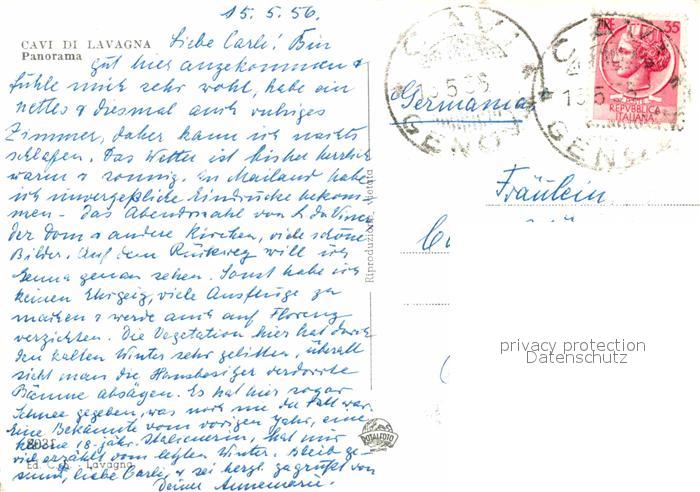 15.5.56.
CAVI DI LAVAGNA
Panorama
Liebe Carli! Bin
gut hier angekommen &
fühle mich sehr wohl, habe ein
nettes & diesmal auch ruhiges
Zimmer, daher kann ich nachts
schlafen. Das Wetter ist bisher herrlich
warm & sonnig. In Mailand habe
ich unvergeßliche Eindrücke bekom-
men - das Abendmahl von L. da Vinci
der Dom & andere Kirchen, viele schöne
Bilder. Auf dem Rückweg will ich
Genua genau sehen. Sonst habe ich
keinen Ehrgeiz, viele Ausflüge zu
machen & werde auch auf Florenz
verzichten. Die Vegetation hier hat durch
den kalten Winter sehr gelitten, überall
sieht man die Hausbesitzer verdorrte
Bäume absägen. Es hat hier sogar
Schnee gegeben, was noch nie der Fall war.
Eine Bekannte vom vorigen Jahr, eine
18-jähr. Italienerin, hat mir
viel erzählt vom letzten Winter. Bleib ge-
sund, liebe Carli, & sei herzl. gegrüßt von
Deiner Annemarie.
8031
Lavagna
Riproduzione Vietata
CAVI
15.5.56
GENOVA
CAVI
15.5
GENOVA
35
REPVBBLICA
ITALIANA
Germania
Fräulein
privacy protection
Datenschutz